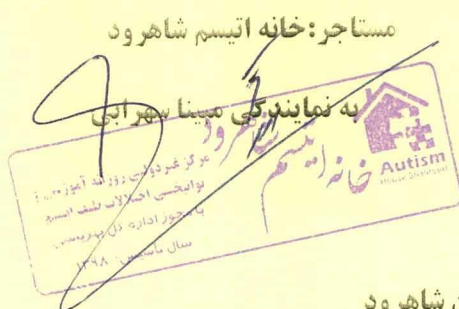 مستاجر:خانه اتیسم شاهرود
به نمایندگی مبینا سهرابی
خانه اتیسم
شاهرود
Autism
مرکز غیردولتی روزانه آموزشی و
توانبخشی اختلالات طیف اتیسم
با مجوز اداره کل بهزیستی
سال تاسیس: ۱۳۹۸
شاهرود